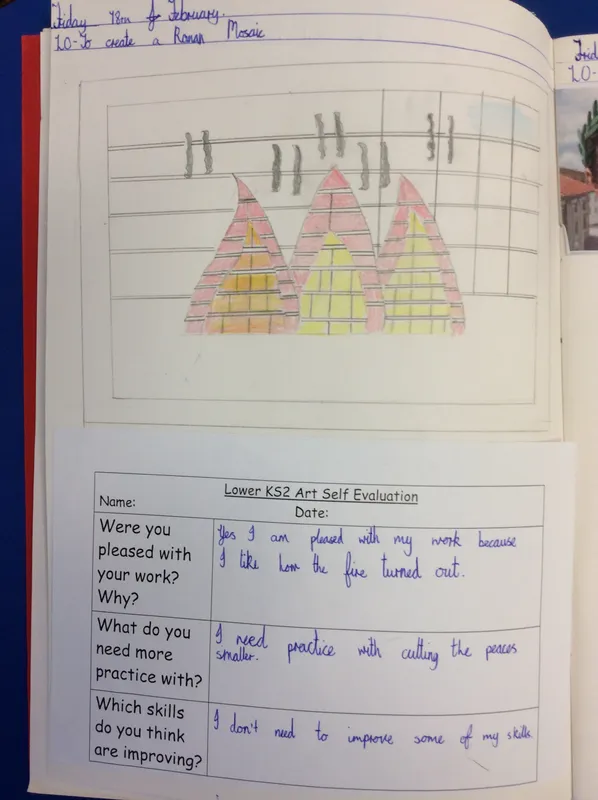 Friday 18th February.
LO-To create a Roman Mosaic
Frid
LO-
Lower KS2 Art Self Evaluation
Name:
Date:
Were you
pleased with
your work?
Why?
Yes I am pleased with my work because
I like how the fire turned out.
What do you
need more
practice with?
I need practice with cutting the peaces
smaller.
Which skills
do you think
are improving?
I don't need to improve some of my skills